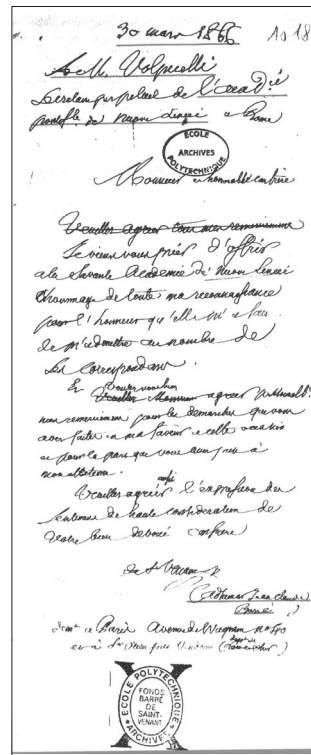 30 mars 1866
A M. Volpicelli
Secrétaire perpétuel de l'Acad.ie
pontifle de Nuovi Lincei a Rome
ECOLE
ARCHIVES
POLYTECHNIQUE
Monsieur et honorable confrère
Veuillez agréer tous mes remerciemens
Je viens vous prier d'offrir
a la Savante Academie de' Nuovi Lincei
l'hommage de toute ma reconnaissance
pour l'honneur qu'elle m'a fait
de m'admettre au nombre de
Ses Correspondans.
Et
Veuillez Monsieur agréer
mes remerciemens pour les demarches que vous
avez faites en ma faveur a cette occasion
et pour la part que vous avez prise à
mon election.
Veuillez agréer aussi l'expression des
sentimens de haute consideration de
Votre bien devoué confrere
de St Venant
(Adhemar Jean Claude
Barré)
dem.t a Paris Avenue de Wagram n°
et à St Ouen près Vendome (Loir et Cher)
ECOLE POLYTECHNIQUE
FONDS
BARRÉ
DE
SAINT-
VENANT
ARCHIVES